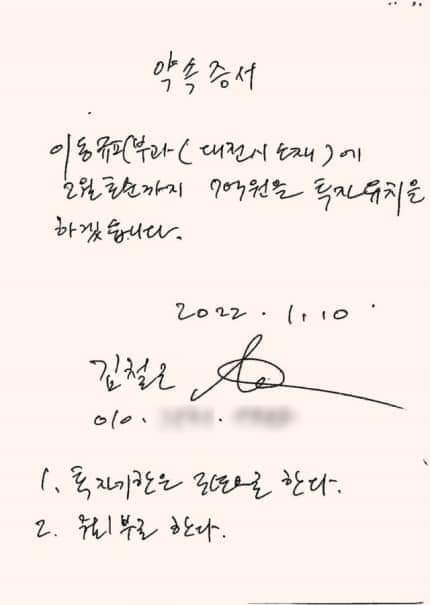 약속증서
이동규피부과 (대전시 소재)에
2월 초순까지 7억원을 투자유치를
하겠습니다.
2022. 1. 10
김철근
010.
1. 투자기간은 으로 한다.
2. 한다.